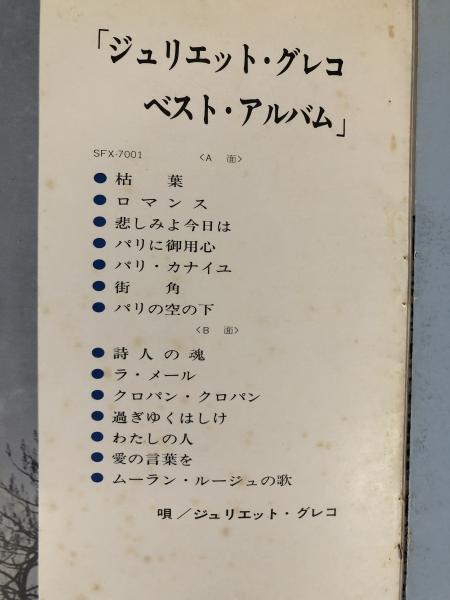 「ジュリエット・グレコ
ベスト・アルバム」
SFX-7001 〈A 面〉
● 枯 葉
● ロマンス
● 悲しみよ今日は
● パリに御用心
● パリ・カナイユ
● 街 角
● パリの空の下
〈B 面〉
● 詩人の魂
● ラ・メール
● クロパン・クロパン
● 過ぎゆくはしけ
● わたしの人
● 愛の言葉を
● ムーラン・ルージュの歌
唄／ジュリエット・グレコ